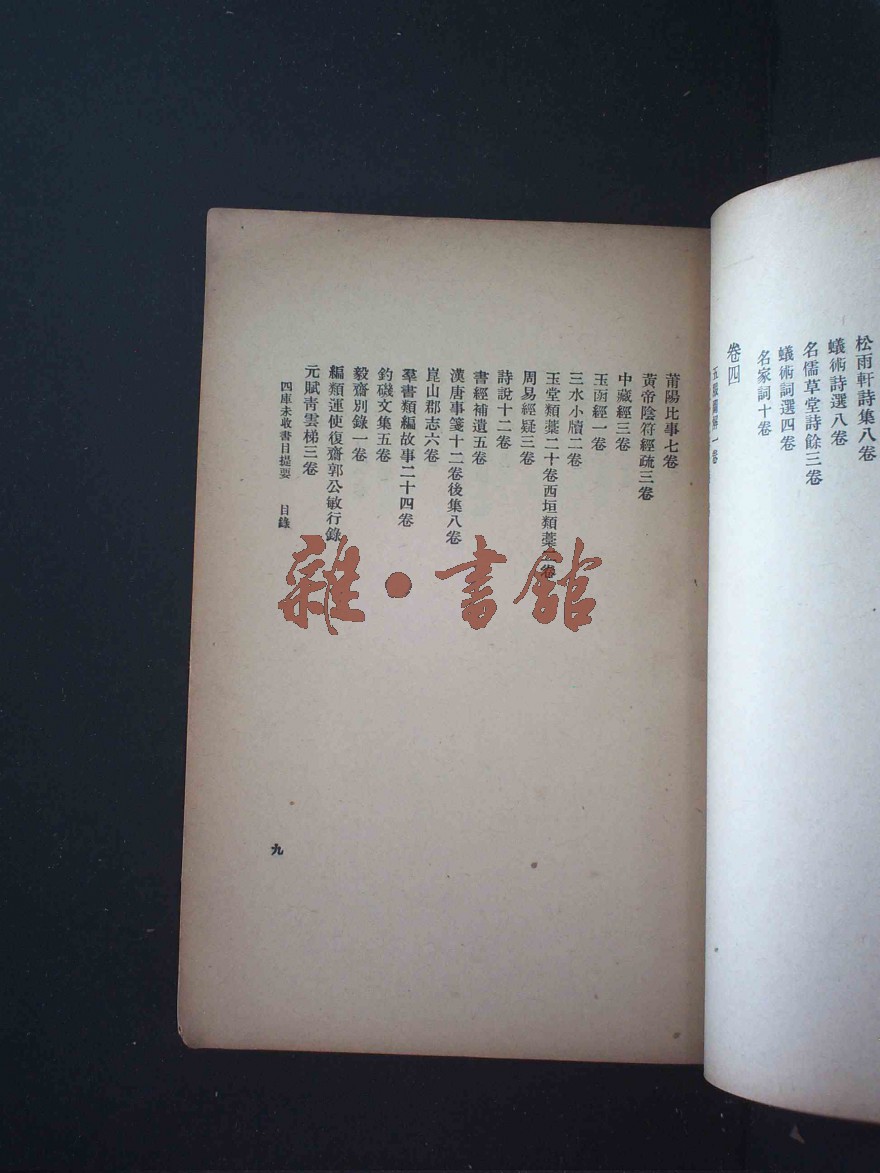 松雨軒詩集八卷
蟻術詩選八卷
名儒草堂詩餘三卷
蟻術詞選四卷
名家詞十卷
卷四
一卷
莆陽比事七卷
黃帝陰符經疏三卷
中藏經三卷
玉函經一卷
三水小牘二卷
玉堂類藁二十卷西垣類藁二卷
周易經疑三卷
詩說十二卷
書經補遺五卷
漢唐事箋十二卷後集八卷
崑山郡志六卷
羣書類編故事二十四卷
釣磯文集五卷
毅齋別錄一卷
編類運使復齋郭公敏行錄
元賦青雲梯三卷
四庫未收書目提要 目錄
九
雜·書館